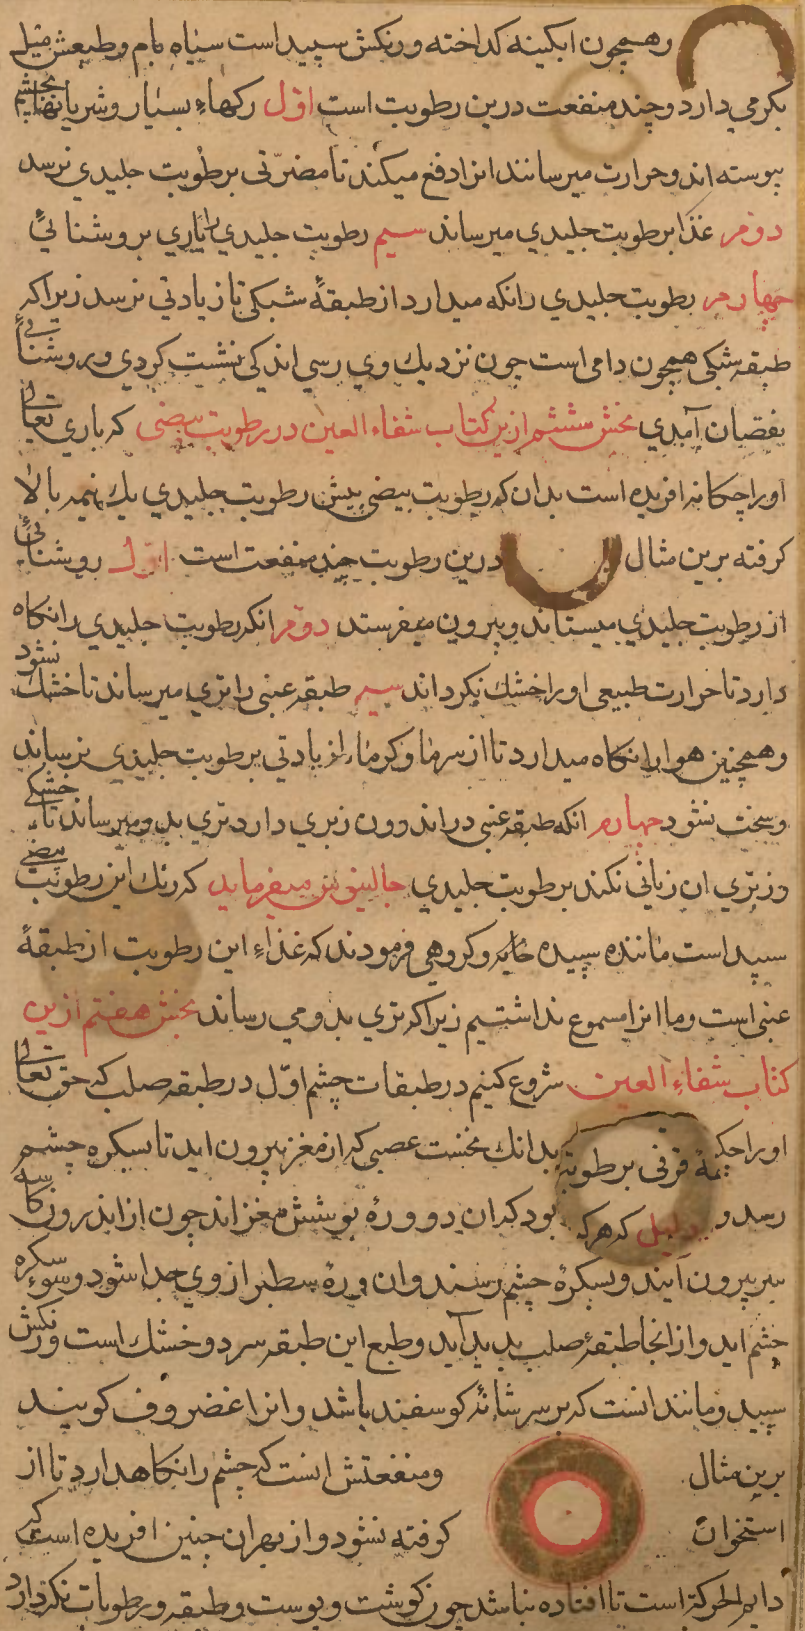 وهمچون ابکینه کداخته ورنکش سپیداست سیاه بام وطبعش میل
بکرمی دارد وچند منفعت درین رطوبت است اوّل رکهاء بسیار وشریانها بچشم
پیوسته اند وحرارت میرسانند انرا دفع میکند تا مضرّتی برطوبت جلیدی نرسد
دوّم غذا برطوبت جلیدی میرساند سیم رطوبت جلیدی را یاری بروشنائی
چهارم رطوبت جلیدی را نکه میدارد از طبقهٔ شبکی تا زیادتی نرسد زیراکه
طبقه شبکی همچون دامی است چون نزدیك وی رسی اندکی نشست کردی وبروشنائی
نقصان آمدی بخش ششم ازین کتاب شفاء العین در رطوبت بیضی که باری تعالی
اورا چکانه افریده است بدان که رطوبت بیضی پیش رطوبت جلیدی یك نیمه بالا
کرفته برین مثال درین رطوبت چند منفعت است اوّل روشنائی
از رطوبت جلیدی میستاند وبیرون میفرستد دوّم انکه رطوبت جلیدی را نکاه
دارد تا حرارت طبیعی اورا خشك نکرداند سیم طبقه عنبی را تری میرساند تا خشك نشود
وهمچنین هوا را نکاه میدارد تا از سرما وکرما زیادتی برطوبت جلیدی نرساند
وسخت نشود چهارم انکه طبقه عنبی در اندرون زبری دارد تری بدو میرساند تا خشکی
وزبری ان زیانی نکند برطوبت جلیدی جالینوس میفرماید که رنك این رطوبت بیضی
سپید است ماننده سپیده خایه وکروهی فرمودند که غذاء این رطوبت از طبقهٔ
عنبی است وما انرا مسموع نداشتیم زیراکه تری بدو می رساند بخش هفتم ازین
کتاب شفاء العین شروع کنیم در طبقات چشم اوّل در طبقه صلب که حق تعالی
اورا چکـ ـمهٔ قرنی برطوبة بدانك نخست عصبی که از مغز بیرون اید تا بسکره چشم
رسد و دلیل که هرکه بود که ان دو ورهٔ پوشش مغز اند چون از اندرون کاسه
سر بیرون آیند وبسکرهٔ چشم رسند وان ورهٔ سطبر از وی جدا شود وسوی سکره
چشم اید واز انجا طبقهٔ صلب پدید آید وطبع این طبقه سرد وخشك است ورنکش
سپید ومانند انست که بر سر شانهٔ کوسفند باشد وانرا غضروف کویند
برین مثال ومنفعتش انست که چشم را نکاهدارد تا از
استخوان کوفته نشود واز بهر ان چنین افریده است که
دایم الحرکة است تا افتاده نباشد چون کوشت وپوست وطبقه ورطوبات نکه دارد